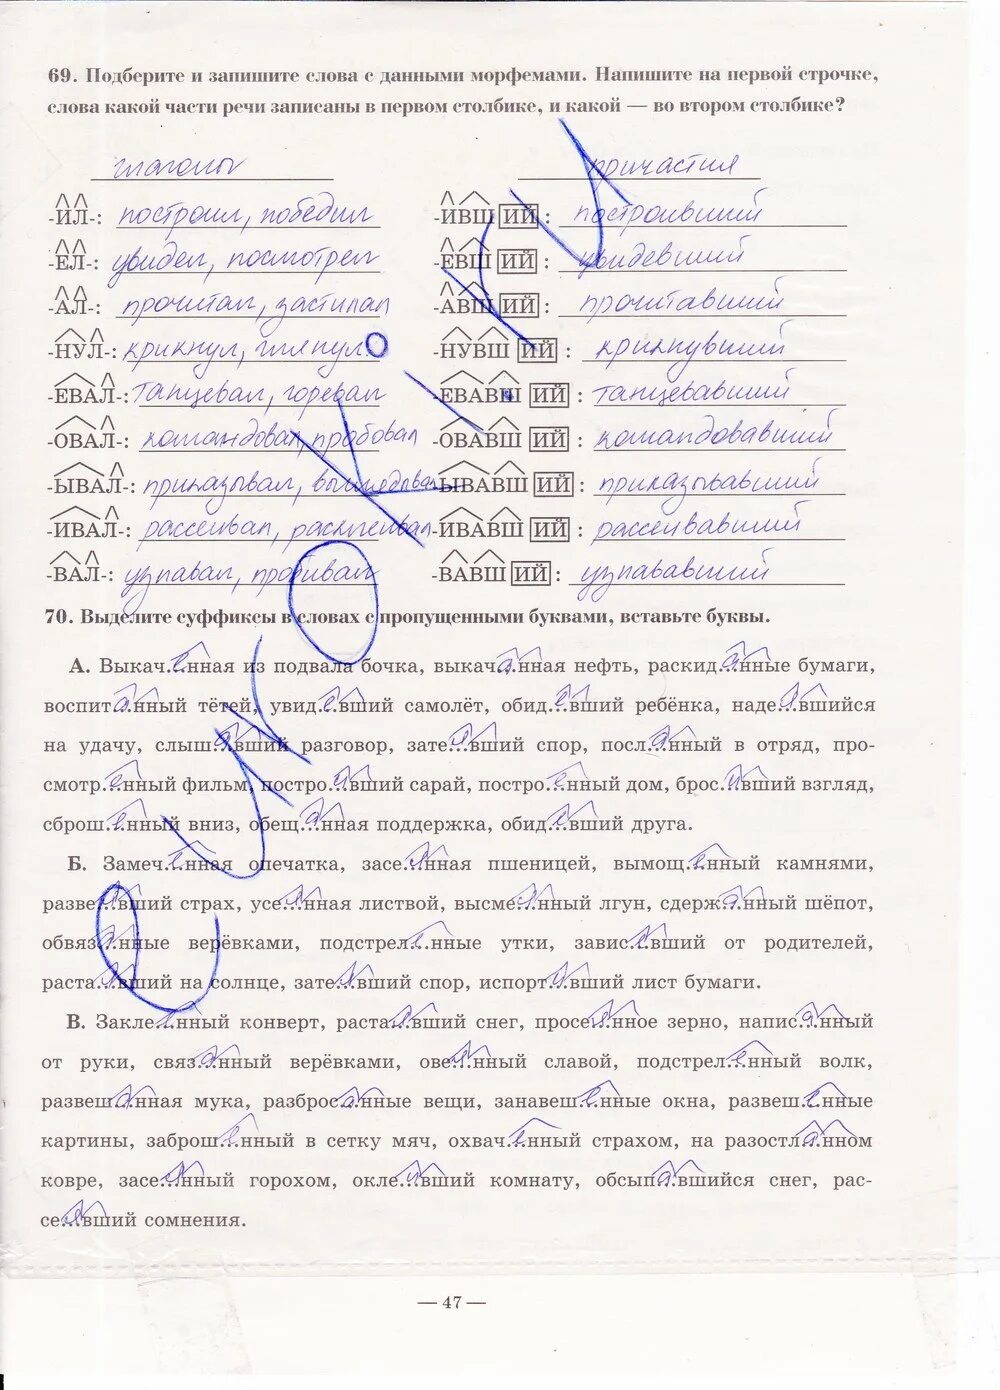 69. Подберите и запишите слова с данными морфемами. Напишите на первой строчке,
слова какой части речи записаны в первом столбике, и какой — во втором столбике?
глаголы причастия
-ИЛ-: построил, победил -ИВШ ИЙ : построивший
-ЕЛ-: увидел, посмотрел -ЕВШ ИЙ : увидевший
-АЛ-: прочитал, застилал -АВШ ИЙ : прочитавший
-НУЛ-: крикнул, глянул -НУВШ ИЙ : крикнувший
-ЕВАЛ-: танцевал, горевал -ЕВАВШ ИЙ : танцевавший
-ОВАЛ-: командовал, пробовал -ОВАВШ ИЙ : командовавший
-ЫВАЛ-: приказывал, выглядывал -ЫВАВШ ИЙ : приказывавший
-ИВАЛ-: рассеивал, расклеивал -ИВАВШ ИЙ : рассеивавший
-ВАЛ-: узнавал, пробивал -ВАВШ ИЙ : узнававший
70. Выделите суффиксы в словах с пропущенными буквами, вставьте буквы.
А. Выкач..е..нная из подвала бочка, выкач..а..нная нефть, раскид..а..нные бумаги,
воспит..а..нный тётей, увид..е..вший самолёт, обид..е..вший ребёнка, наде..я..вшийся
на удачу, слыш..а..вший разговор, зате..я..вший спор, посл..а..нный в отряд, про-
смотр..е..нный фильм, постро..и..вший сарай, постро..е..нный дом, брос..и..вший взгляд,
сброш..е..нный вниз, обещ..а..нная поддержка, обид..е..вший друга.
Б. Замеч..е..нная опечатка, засе..я..нная пшеницей, вымощ..е..нный камнями,
разве..я..вший страх, усе..я..нная листвой, высме..я..нный лгун, сдерж..а..нный шёпот,
обвяз..а..нные верёвками, подстрел..е..нные утки, завис..е..вший от родителей,
раста..я..вший на солнце, зате..я..вший спор, испорт..и..вший лист бумаги.
В. Закле..е..нный конверт, раста..я..вший снег, просе..я..нное зерно, напис..а..нный
от руки, связ..а..нный верёвками, ове..я..нный славой, подстрел..е..нный волк,
развеш..а..нная мука, разброс..а..нные вещи, занавеш..е..нные окна, развеш..е..нные
картины, заброш..е..нный в сетку мяч, охвач..е..нный страхом, на разостл..а..нном
ковре, засе..я..нный горохом, окле..и..вший комнату, обсып..а..вшийся снег, рас-
се..я..вший сомнения.
— 47 —